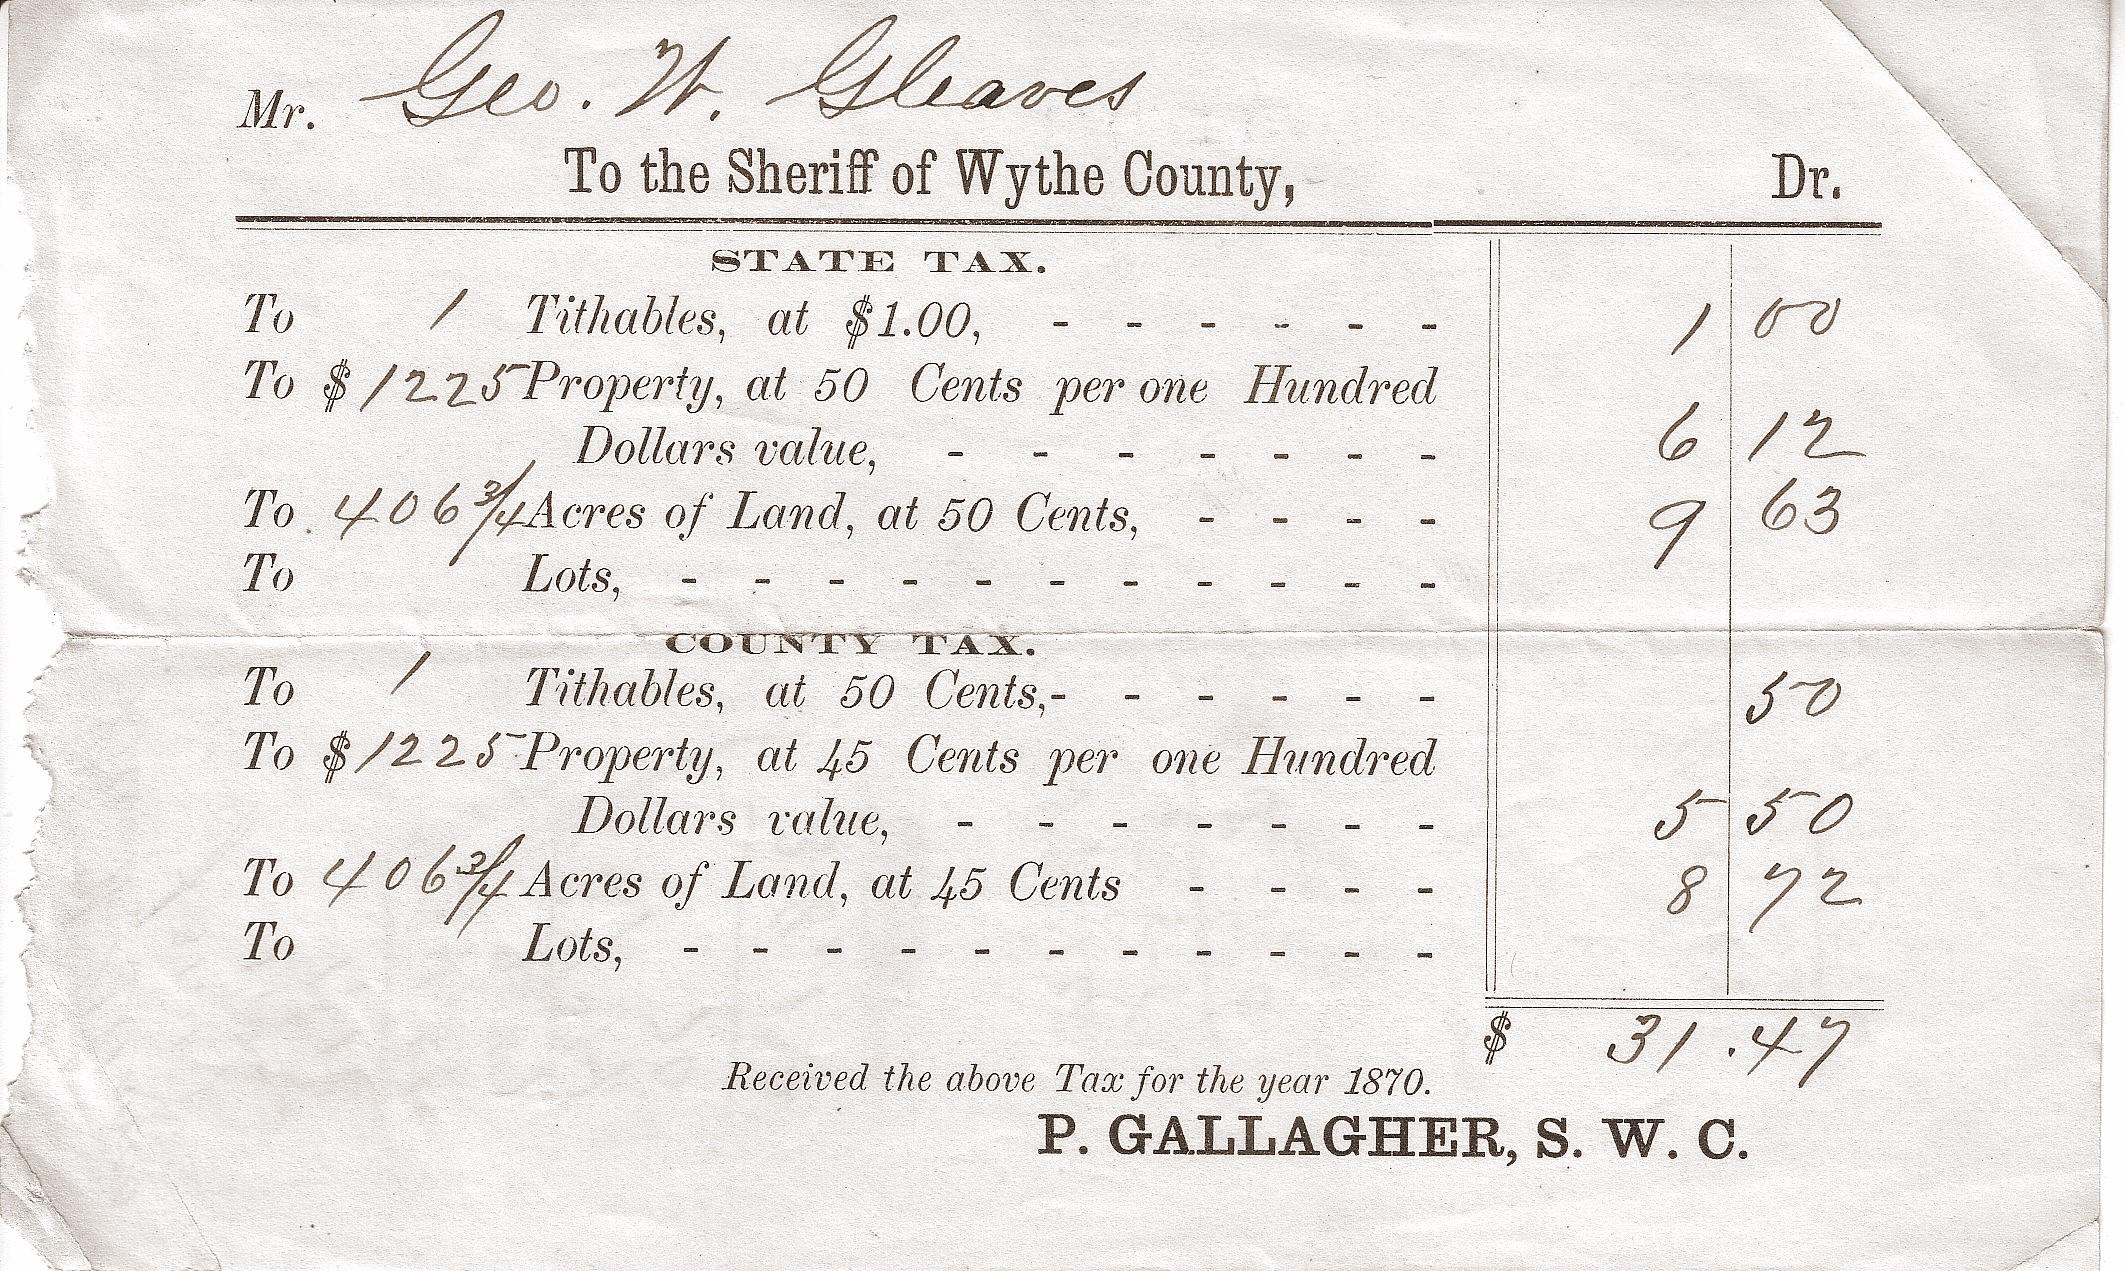 Mr. Geo. W. Gleaves
To the Sheriff of Wythe County, Dr.
STATE TAX.
To 1 Tithables, at $1.00, - - - - - - 1 00
To $1225 Property, at 50 Cents per one Hundred
Dollars value, - - - - - - - 6 12
To 406 3/4 Acres of Land, at 50 Cents, - - - - 9 63
To Lots, - - - - - - - - - - -
COUNTY TAX.
To 1 Tithables, at 50 Cents, - - - - - - 50
To $1225 Property, at 45 Cents per one Hundred
Dollars value, - - - - - - - 5 50
To 406 3/4 Acres of Land, at 45 Cents - - - - 8 72
To Lots, - - - - - - - - - - -
$ 31.47
Received the above Tax for the year 1870.
P. GALLAGHER, S. W. C.